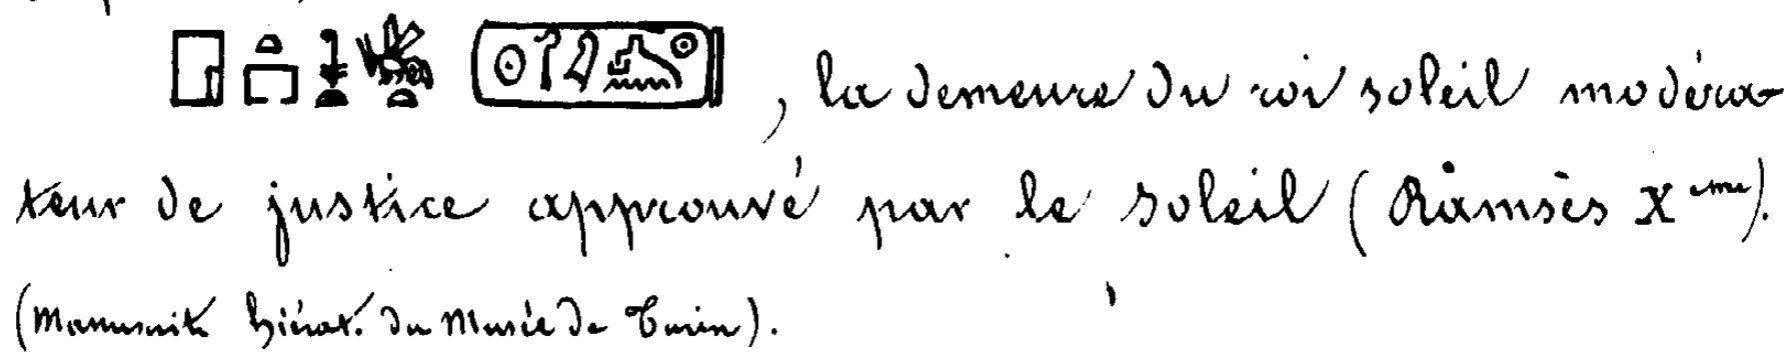 , la demeure du roi soleil modéra-
teur de justice approuvé par le soleil (Râmsès X ème).
(Manuscrit hiérat. du Musée de Turin).